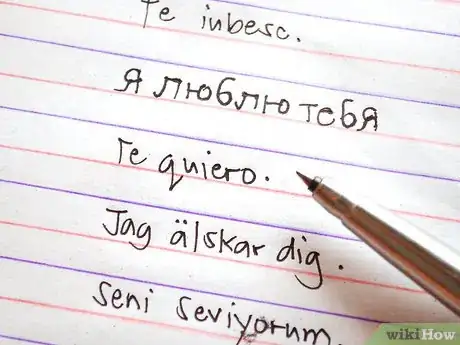 Te iubesc.
Я люблю тебя
Te quiero.
Jag älskar dig.
Seni seviyorum.
wikiHow